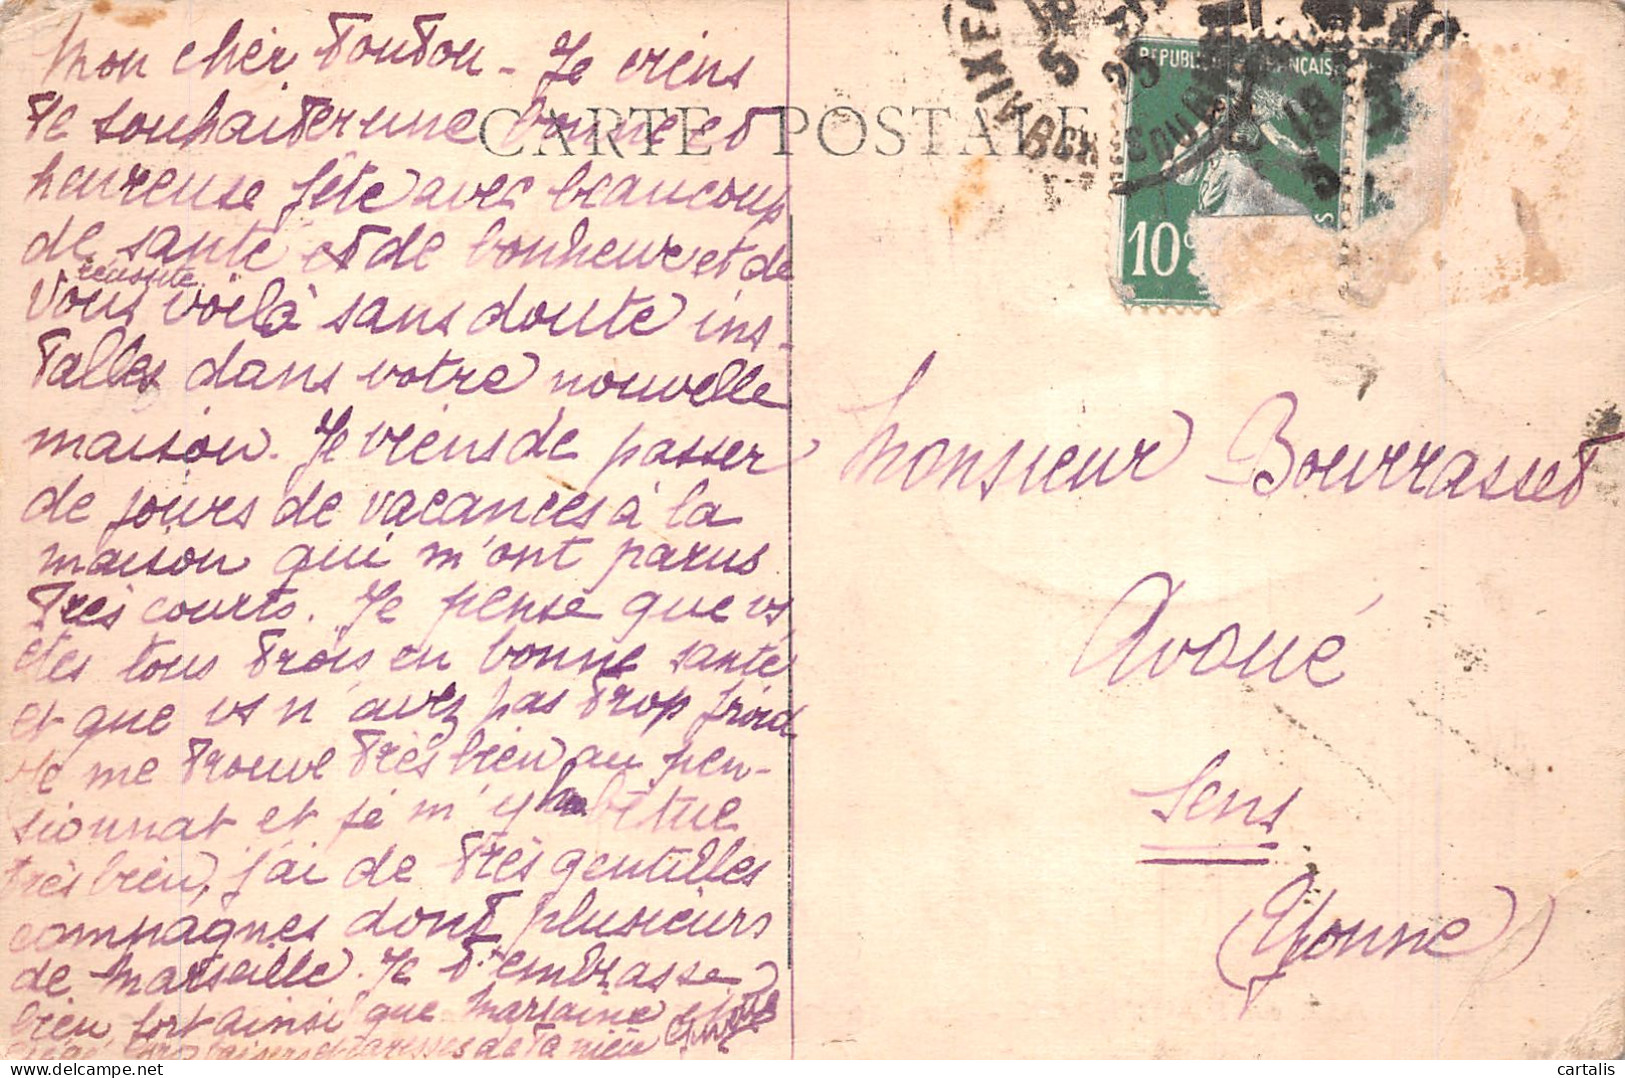 CARTE POSTALE
Mon cher Toutou - Je viens
te souhaiter une bonne et
heureuse fête avec beaucoup
de santé et de bonheur et de
réussite.
Vous voilà sans doute ins-
tallés dans votre nouvelle
maison. Je viens de passer
de jours de vacances à la
maison qui m'ont parus
très courts. Je pense que vs
êtes tous trois en bonne santé
et que vs n'avez pas trop froid
Je me trouve très bien au pen-
sionnat et je m'y habitue
très bien, j'ai de très gentilles
compagnes dont plusieurs
de Marseille. Je t'embrasse
bien fort ainsi que Marraine et
baisers et caresses de ta nièce
REPUBLIQUE FRANÇAISE
10c
Monsieur Bourrasset
Avoué
Sens
(Yonne)
cartalis